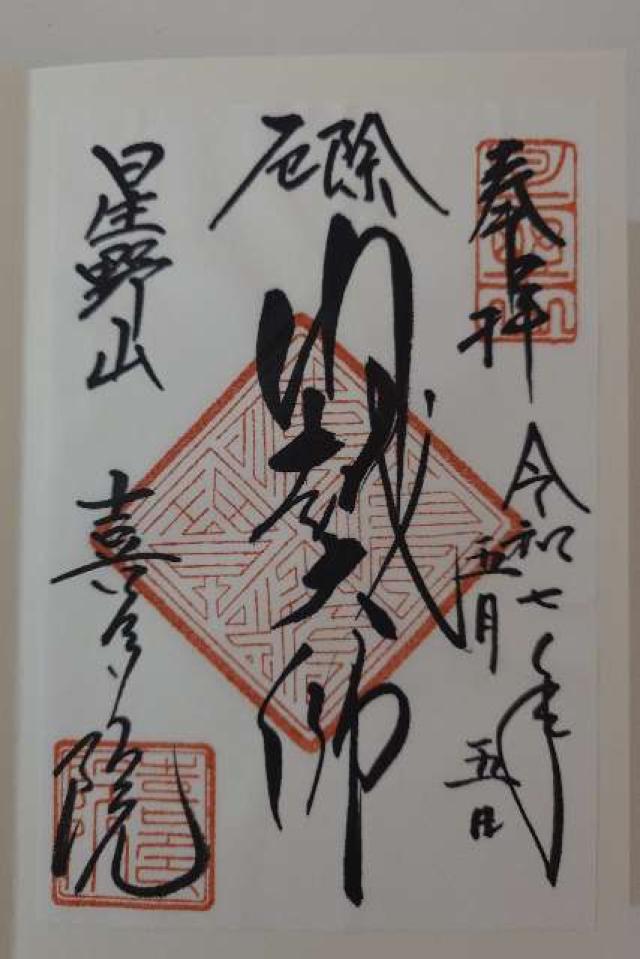 奉拝
令和七年
五月五日
厄除
川越大師
星野山
喜多院